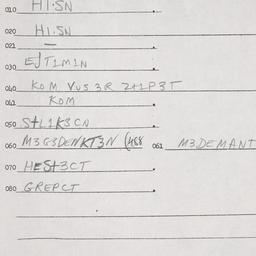 010 HI.SN
020 HI.SN
021 —
030 EJT1M1N
040 KOM VUS 3R 2+1P3T
041 KOM
050 S+L1K3CN
060 M3G3DENKT3N (468 061 M3DEMANT
070 HES+3CT
080 GREPCT